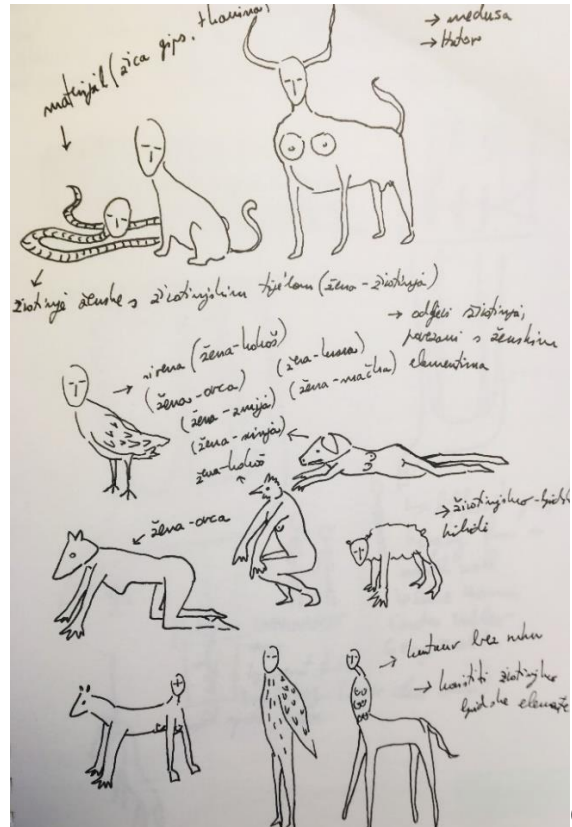 → medusa
→ Hator
materijal (žica, gips, tkanina)
životinja ženske s životinjskim tijelom (žena-životinja)
→ odljevi životinja,
povezani s ženskim
elementima
→ sirena (žena-kokoš)
(žena-ovca)
(žena-krava)
(žena-zmija)
(žena-mačka)
(žena-svinja)
žena-kokoš
žena-ovca
→ životinjsko-ljudski
hibridi
→ kentaur bez ruku
→ koristiti životinjsko
ljudske elemente